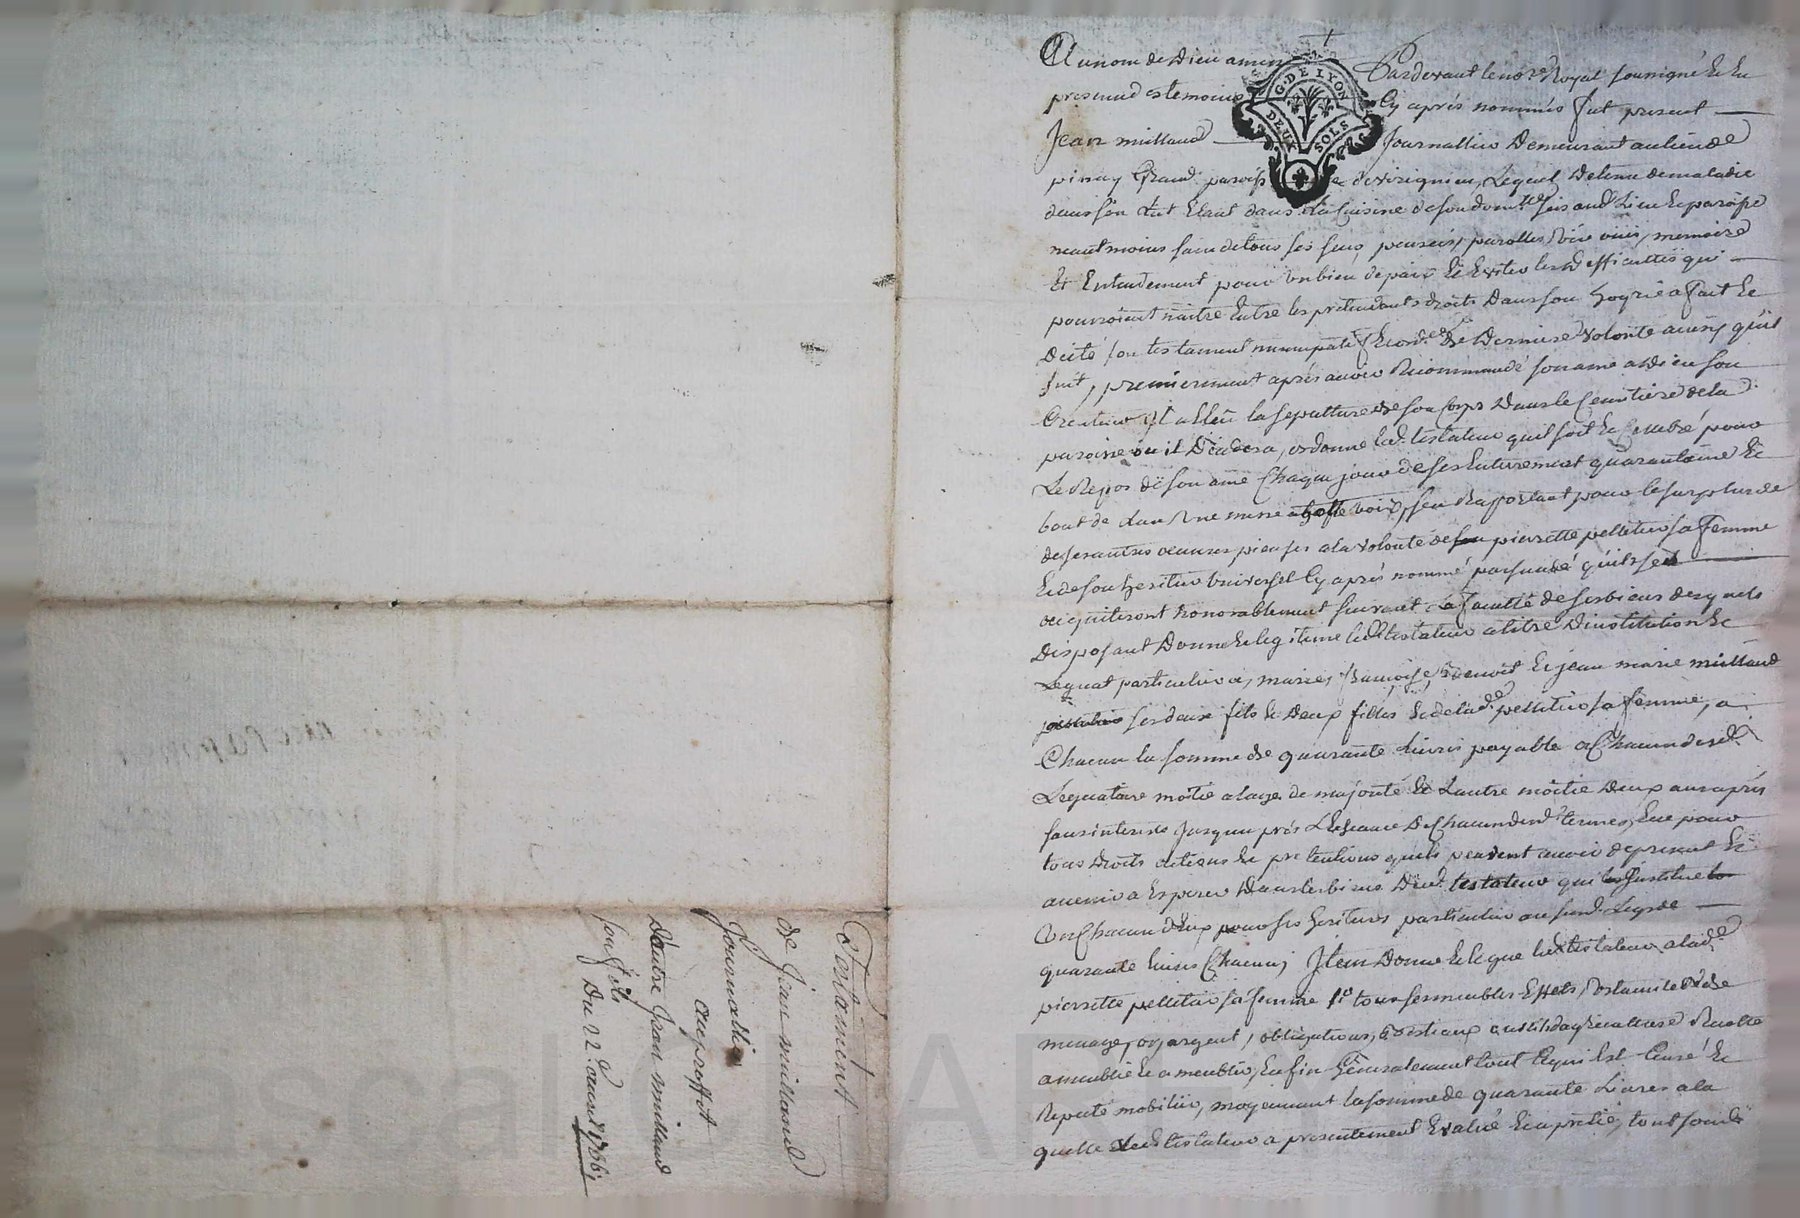 Au nom de Dieu amen Pardevant le no.re Royal soussigné & En
presence des temoins Cy aprés nommés fut present
Jean millaud Journallier Demeurant au lieu de
pinay Grand paroisse de virignieu, Lequel Detenu de maladie
dans son Lit Etant dans La Cuisine de son dom.lle sis aud. Lieu & paroisse
neantmoins sain de tous ses sens, pensées, parolles, vüe ouïe, memoire
Et Entendement pour un bien de paix Et Eviter les Difficultés qui
pourroient naitre Entre les pretendants droits Dans son hoyrie a fait &
dicté son testament nuncupatif & ord.ce de Derniere volonté ainsy qu'il
suit, premierement aprés avoir Recommandé son ame a Dieu son
Createur Et Elleu la sepulture de son Corps Dans le Cemitiere de la
paroisse ou il Decedera, ordonne led. testateur quil soit Celebré pour
Le Repos de son ame Chaque jour de ses Enterrement quarantaine &
bout de L'an Une messe a haute voix, s'en Raportant pour le surplus de
de ses autres oeuvres pieuses a la volonté de son pierrette pelletier sa femme
& de son heritier Universel Cy aprés nommé persuadé qu'ils s'en
acquiteront honorablement suivant La faculté de ses biens desquels
Disposant Donne & legitime led. testateur a titre D'institution &
Legat particulier a, marie, françoise, Benoit & jean marie millaud
ses deux fils & Deux filles & de lad.e pelletier sa femme, a
Chacun la somme de quarante Livres payable a Chacun desd.
Legataire moitié a l'age de majorité & L'autre moitié Deux ans aprés
sans interets Jusques aprés L'Echeance De Chacun desd. termes, & ce pour
tous Droits actions & pretentions quils peuvent avoir de present &
avenir a Esperer Dans les biens Dud. testateur qui les Institue
Un Chacun d'Eux pour ses heritiers particulier au susd. Legs de
quarante livres Chacun; Item Donne & legue led. testateur a lad.e
pierrette pelletier sa femme tous ses meubles Effets, Ustancile de
menage, or, argent, obligations, Bestiaux outils d'agriculture Recolte
ameublie & a meublir, Enfin Generalement tout Ce qui Est Censé &
Reputé mobilier, moyennant la somme de quarante Livres a la
quelle Led. testateur a presentement Evalué & aprétié, tout
Testament
de Jean millaud
Journallier
au proffit
D'autre Jean millaud
son fils
Du 22.e aoust 1766
G. DE LYON
DEUX SOLS